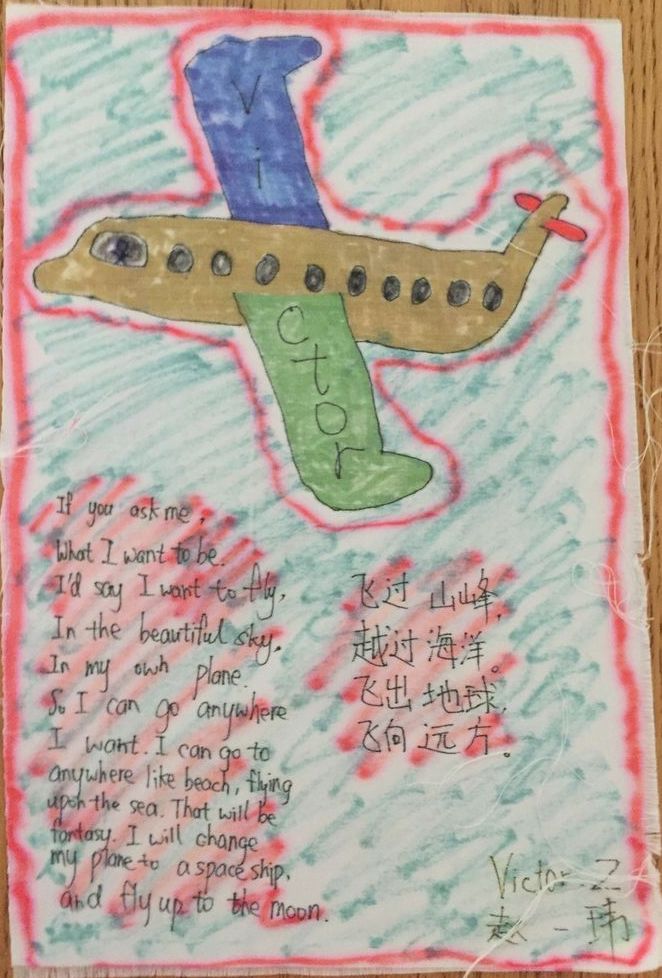 Vi
ctor
If you ask me,
What I want to be.
I'd say I want to fly,
In the beautiful sky.
In my own plane.
So I can go anywhere
I want. I can go to
anywhere like beach, flying
upon the sea. That will be
fantasy. I will change
my plane to a space ship,
and fly up to the moon.
飞过山峰,
越过海洋。
飞出地球,
飞向远方。
Victor. Z
赵一玮